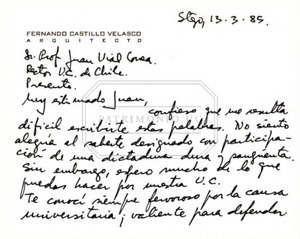 Stgo, 13.3.85.
FERNANDO CASTILLO VELASCO
ARQUITECTO
Sr. Prof. Juan Vial Correa
Rector U.C. de Chile.
Presente.
Muy estimado Juan,
confieso que me resulta
difícil escribirte estas palabras. No siento
alegría al saberte designado con participa-
ción de una dictadura dura y sangrienta.
Sin embargo, espero mucho de lo que
puedas hacer por nuestra U.C.
Te conocí siempre fervoroso por la causa
universitaria; valiente para defender